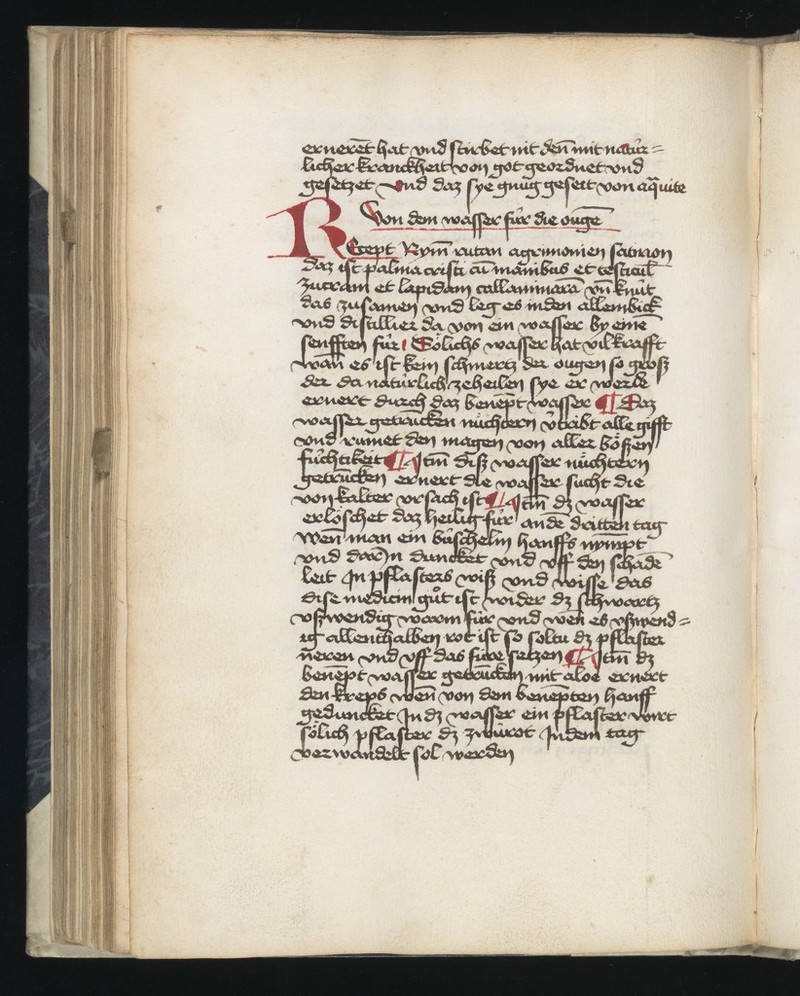 ernerēt hat vnd stirbet nit deñ mit natúr=
licher kranckheit von got geordnet vnd
gesetzet vnd daz sye gnug geseit von aq̄uite
Von dem wasser fúr die ougē
REcept Nym̄ rutan agrimonien satirion
daz ist palma cristi cū manibus et testicul
zucram et lapidem callaminarā vn̄ knút
das zusamen vnd leg es in den allembick
vnd distillier da von ein wasser by einē
senfften fúr Sölichs wasser hat vil krafft
wañ es ist kein schmertz der ougen so groß
der da natúrlich zeheilen sye er werde
ernert durch daz benēpt wasser ¶ Daz
wasser getrúcken núchtern v̉tribt alle gifft
vnd rumet den magen von aller bößen
fúchtikeit ¶ Itm̄ diß wasser núchtern
getrúcken ernert die wasser sucht die
von kalter vrsach ist ¶ Itm̄ dz wasser
erlöschet daz heilig fúr an dē dritten tag
wen̄ man ein búschelin hanffs nympt
vnd dar In duncket vnd vff den schadē
leit In pflasters wiß vnd wisse das
dise medicin gůt ist wider dz schwartz
vßwendig warm fúr vnd wen̄ es vßwend=
ig allenthalben rot ist so soltu dz pflaster
n̄eren vnd vff das fúre setzen ¶ Itm̄ dz
benēpt wasser getrúcken mit aloe ernert
den kreps wen̄ von dem benēpten hanff
geduncket In dz wasser ein pflaster wirt
sölich pflaster dz zwúrot In dem tag
verwandelt sol werden